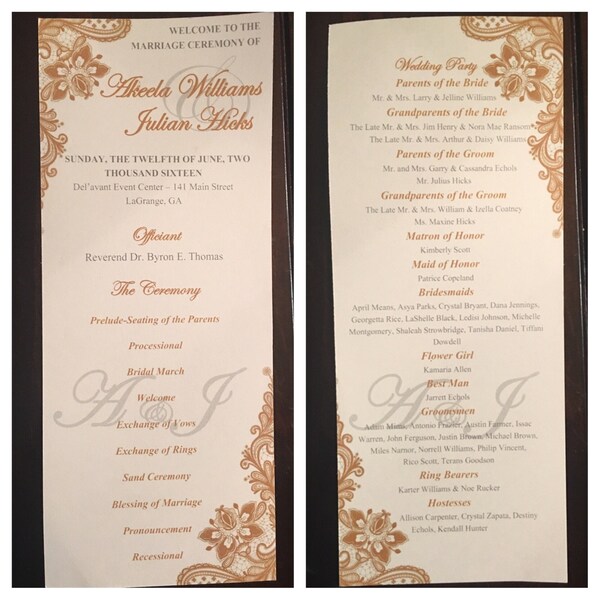 WELCOME TO THE
MARRIAGE CEREMONY OF
&
Akeela Williams
Julian Hicks
SUNDAY, THE TWELFTH OF JUNE, TWO
THOUSAND SIXTEEN
Del'avant Event Center – 141 Main Street
LaGrange, GA
Officiant
Reverend Dr. Byron E. Thomas
The Ceremony
Prelude-Seating of the Parents
Processional
Bridal March
Welcome
A & J
Exchange of Vows
Exchange of Rings
Sand Ceremony
Blessing of Marriage
Pronouncement
Recessional
Wedding Party
Parents of the Bride
Mr. & Mrs. Larry & Jelline Williams
Grandparents of the Bride
The Late Mr. & Mrs. Jim Henry & Nora Mae Ransom
The Late Mr. & Mrs. Arthur & Daisy Williams
Parents of the Groom
Mr. and Mrs. Garry & Cassandra Echols
Mr. Julius Hicks
Grandparents of the Groom
The Late Mr. & Mrs. William & Izella Coatney
Ms. Maxine Hicks
Matron of Honor
Kimberly Scott
Maid of Honor
Patrice Copeland
Bridesmaids
April Means, Asya Parks, Crystal Bryant, Dana Jennings,
Georgetta Rice, LaShelle Black, Ledisi Johnson, Michelle
Montgomery, Shaleah Strowbridge, Tanisha Daniel, Tiffani
Dowdell
Flower Girl
Kamaria Allen
Best Man
Jarrett Echols
A & J
Groomsmen
Adam Mann, Antonio Frazier, Austin Farmer, Isaac
Warren, John Ferguson, Justin Brown, Michael Brown,
Miles Narnor, Norrell Williams, Philip Vincent,
Rico Scott, Terans Goodson
Ring Bearers
Karter Williams & Noe Rucker
Hostesses
Allison Carpenter, Crystal Zapata, Destiny
Echols, Kendall Hunter